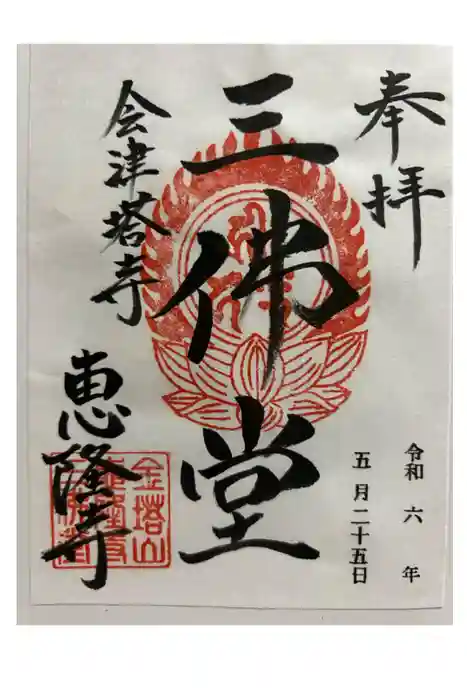 奉拝
令和 六 年
五月二十五日
三佛堂
会津塔寺
恵隆寺
金塔山